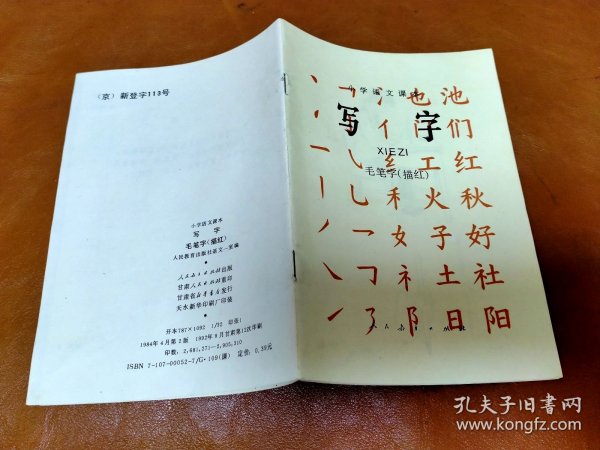 （京）新登字113号
小学语文课本
写 字
毛笔字（描红）
人民教育出版社语文一室编
人民教育出版社出版
甘肃人民出版社重印
甘肃省新华书店发行
天水新华印刷厂印装
开本787×1092 1/32 印张1
1984年4月第2版 1992年8月甘肃第12次印刷
印数：2,681,371—2,905,310
ISBN 7-107-00052-7/G·109(课) 定价：0.39元
小学语文课本
写 字
XIEZI
毛笔字（描红）
氵 也 池
亻 门 们
纟 工 红
禾 火 秋
女 子 好
礻 土 社
阝 日 阳
孔夫子旧书网
www.kongfz.com